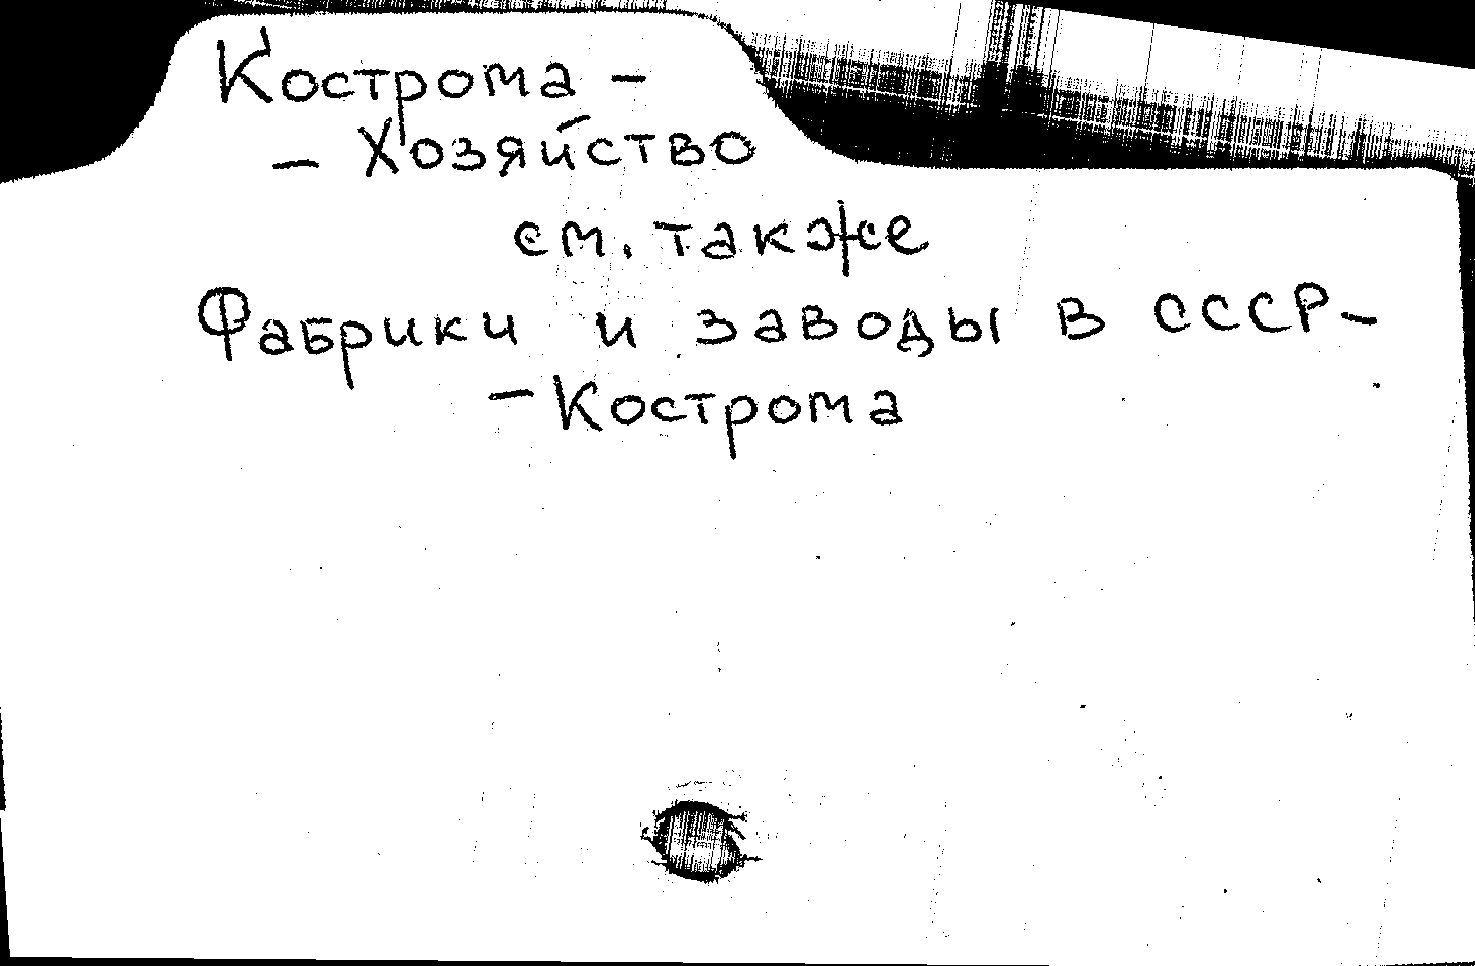 Кострома -
- Хозяйство
см. также
Фабрики и заводы в СССР-
- Кострома